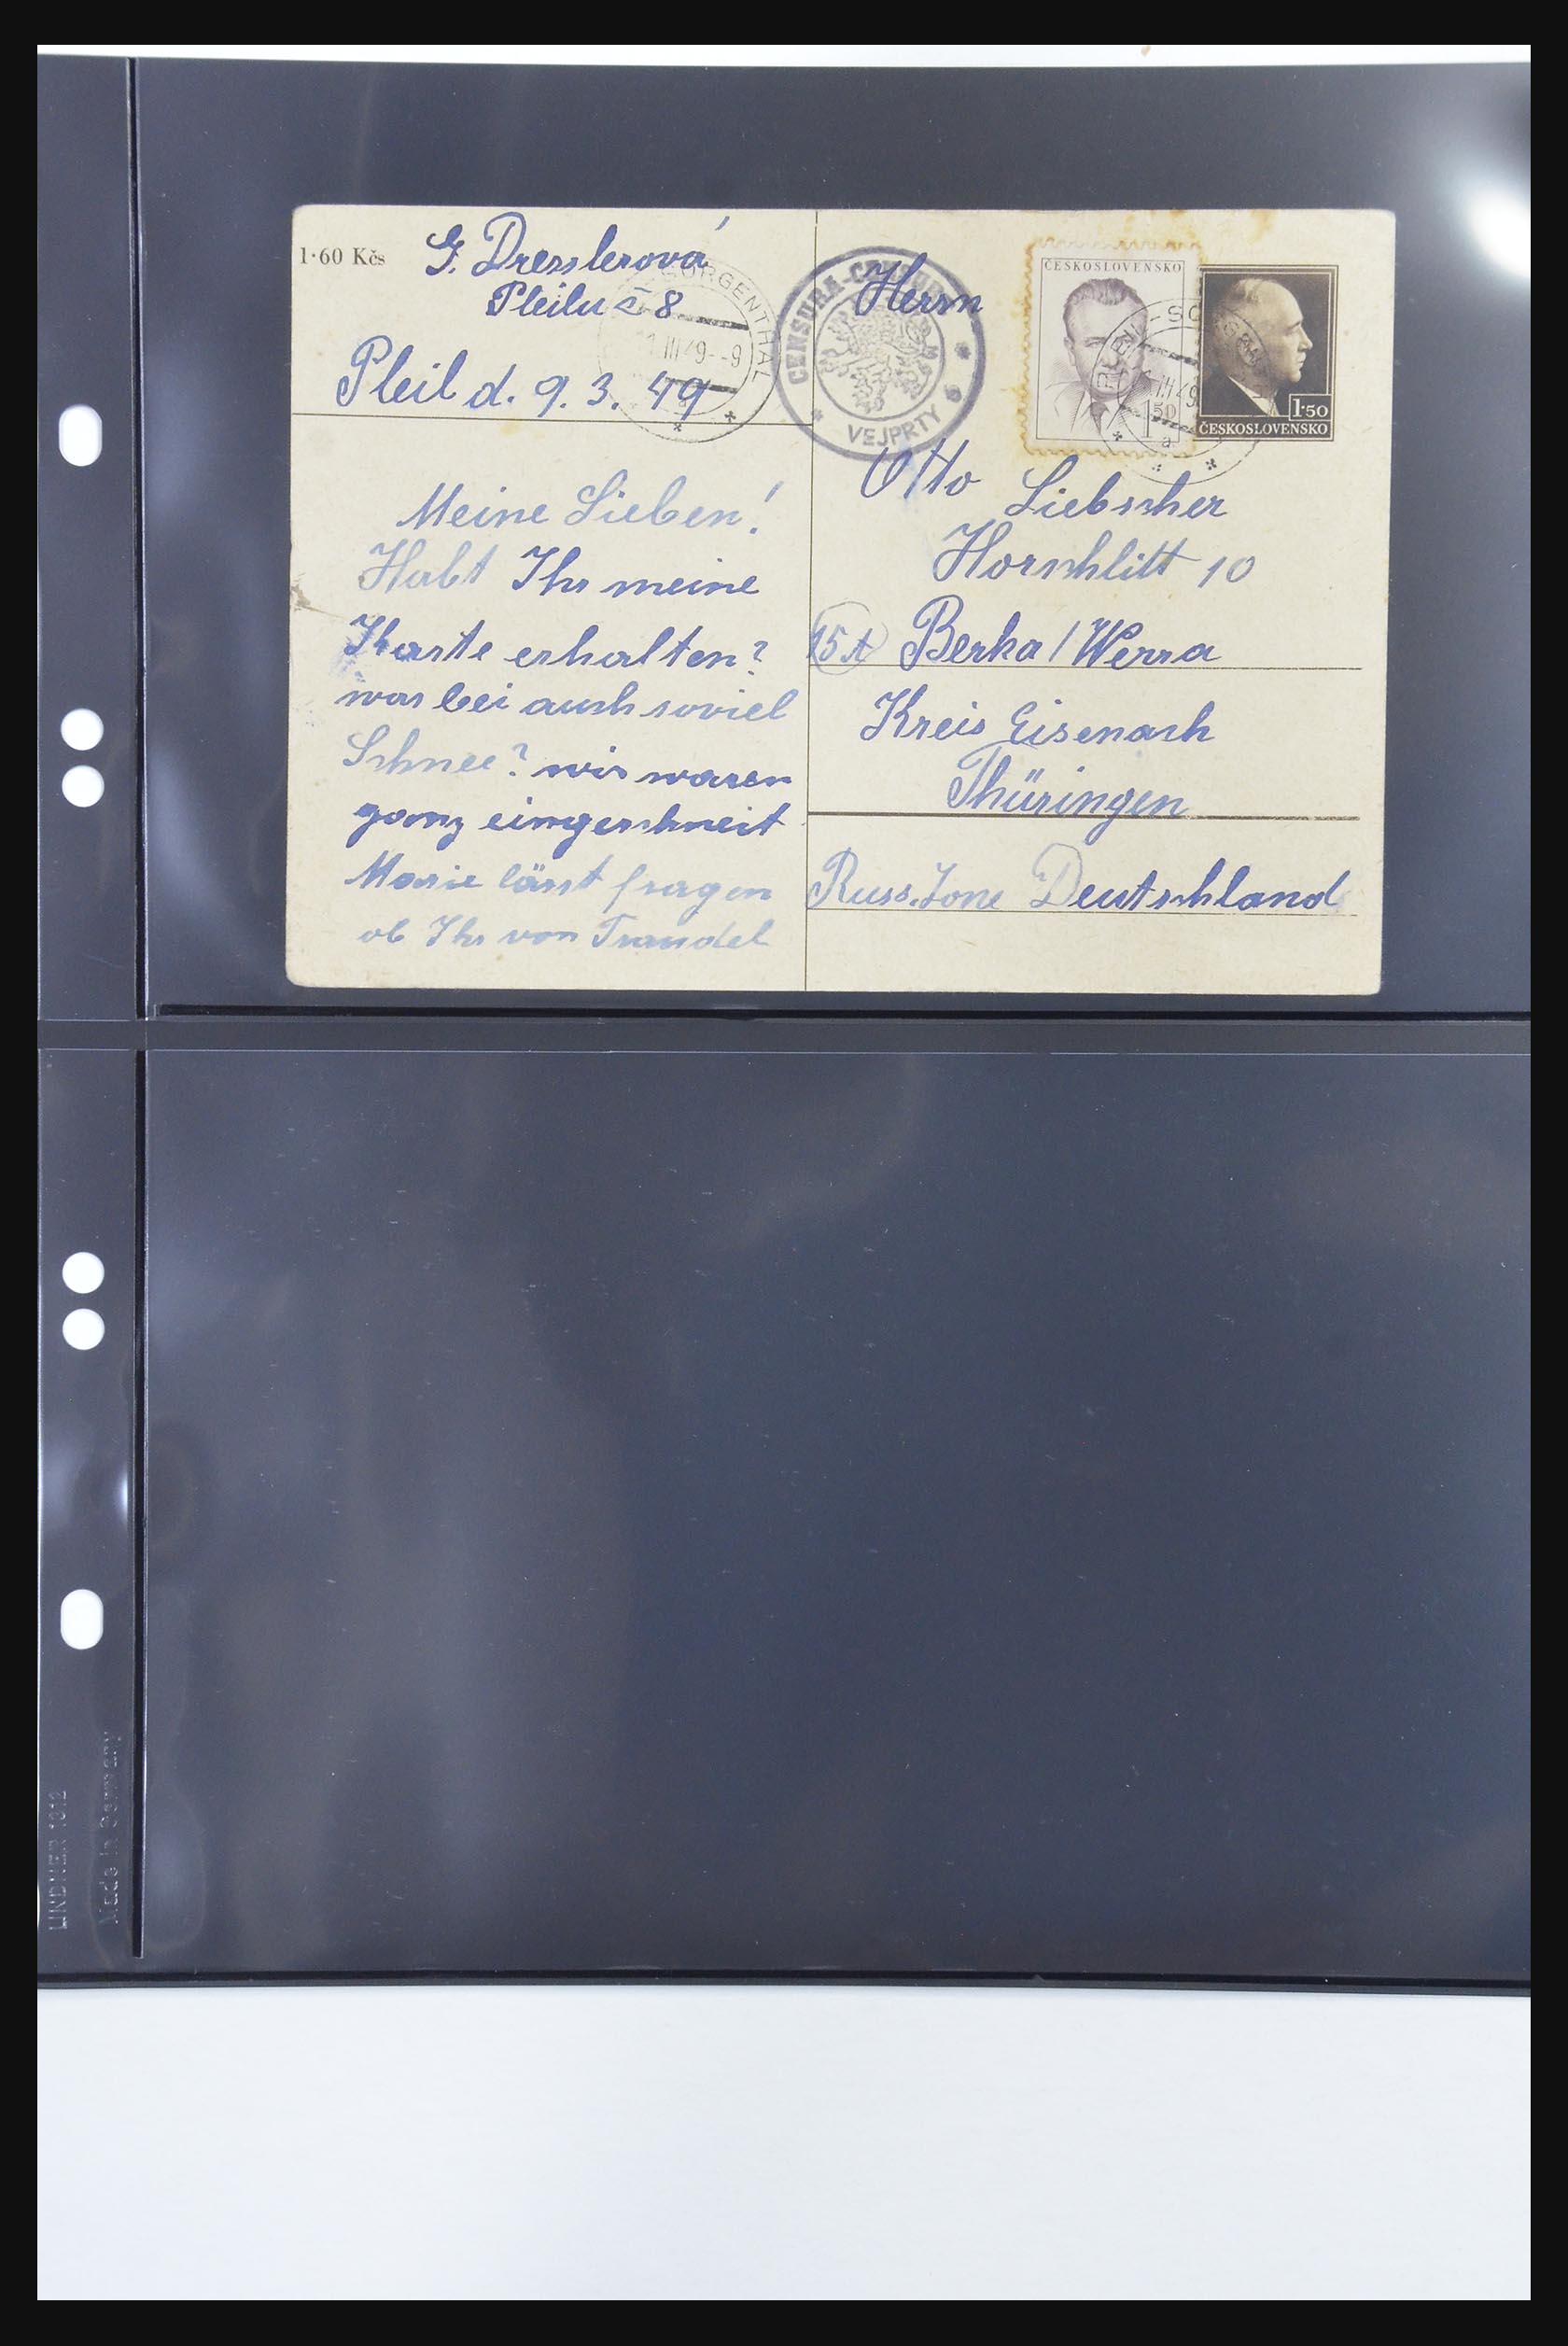 1·60 Kčs
G. Dresslerová
Pleilu č 8
Pleil d. 9. 3. 49
SORGENTHAL
III 49 - -9
CENSURA-CENSURE
VEJPRTY
Herrn
ČESKOSLOVENSKO
1·50
ČESKOSLOVENSKO
III 49
a
Otto Liebscher
Hornschlitt 10
15 A Berka / Werra
Kreis Eisenach
Thüringen
Russ. Zone Deutschland
Meine Lieben!
Habt Ihr meine
Karte erhalten?
war bei auch soviel
Schnee? wir waren
ganz eingeschneit
Marie lässt fragen
ob Ihr von Traudel
LINDNER
Made in Germany